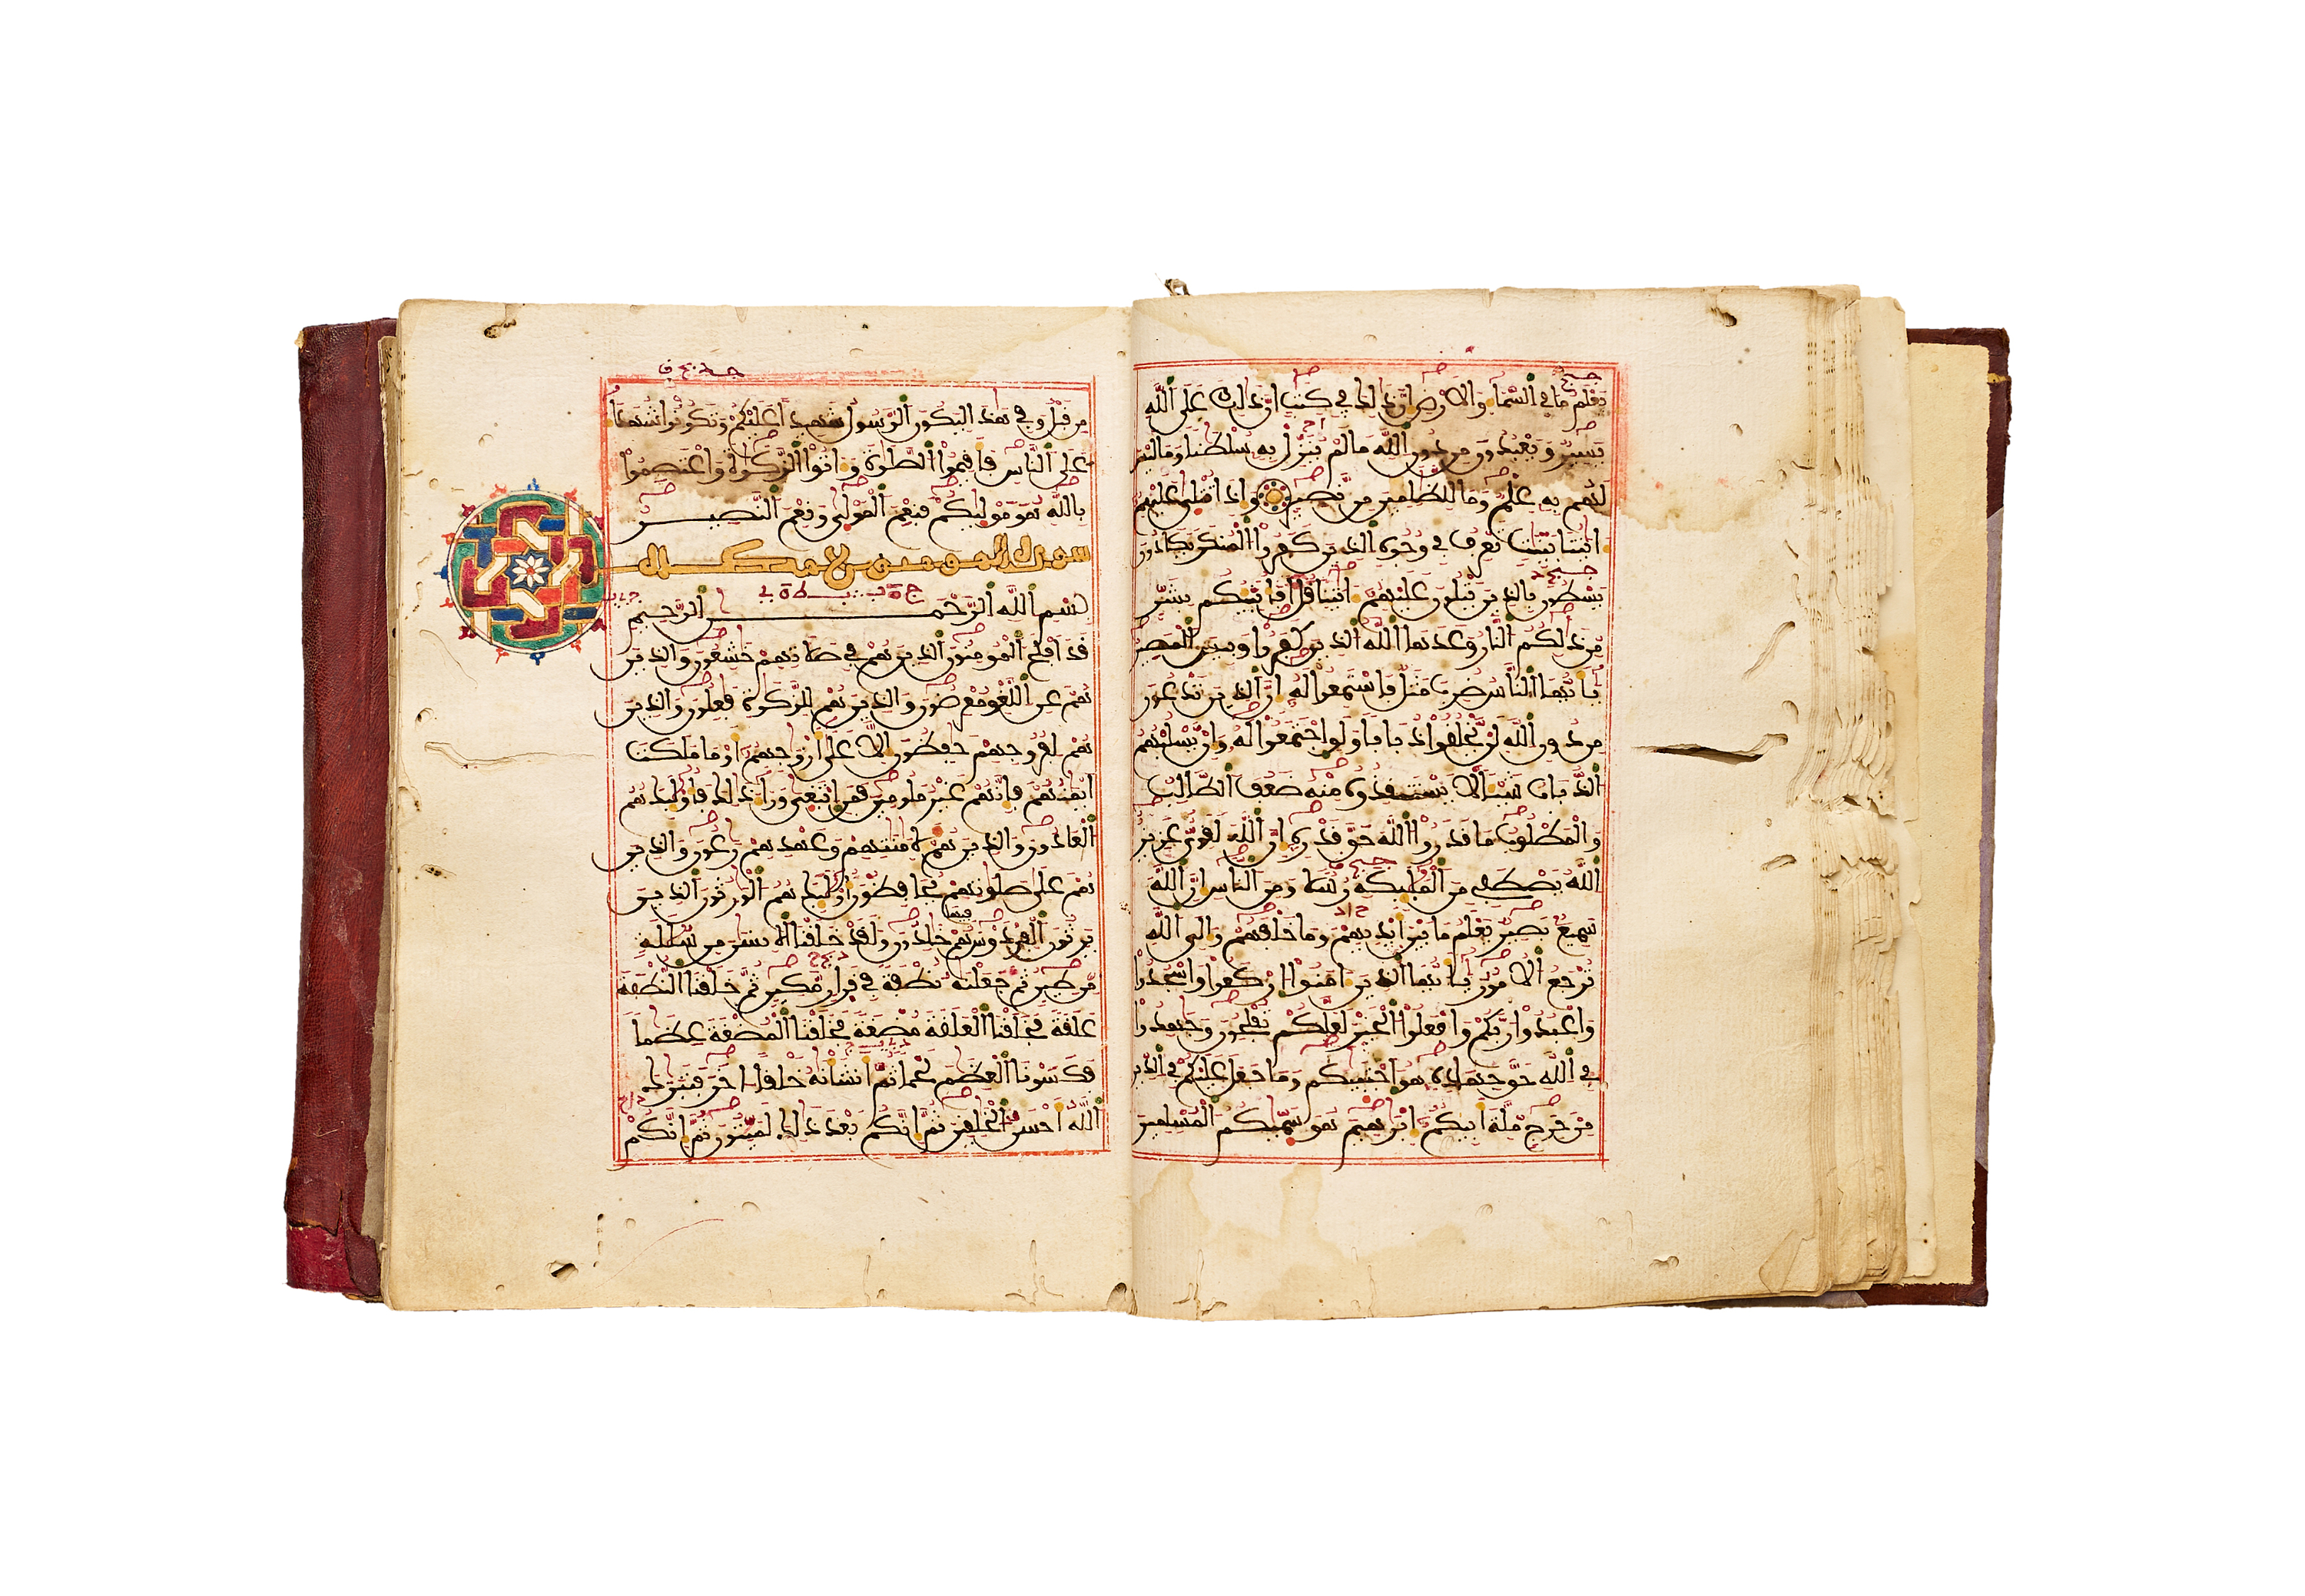 يعلم ما في السما والارض ان ذلك في كتب ان ذلك على الله
يسير ويعبدون من دون الله ما لم ينزل به سلطنا وما ليس
لهم به علم وما للظلمين من نصير واذا تتلى عليهم
ايتنا بينت تعرف في وجوه الذين كفروا المنكر يكادون
يسطون بالذين يتلون عليهم ايتنا قل افانبيكم بشر
من ذلكم النار وعدها الله الذين كفروا وبيس المصير
يايها الناس ضرب مثل فاستمعوا له ان الذين تدعون
من دون الله لن يخلقوا ذبابا ولو اجتمعوا له وان يسلبهم
الذباب شيا لا يستنقذوه منه ضعف الطالب
والمطلوب ما قدروا الله حق قدره ان الله لقوي عزيز
الله يصطفي من المليكة رسلا ومن الناس ان الله
سميع بصير يعلم ما بين ايديهم وما خلفهم والى الله
ترجع الامور يايها الذين امنوا اركعوا واسجدوا
واعبدوا ربكم وافعلوا الخير لعلكم تفلحون وجهدوا
في الله حق جهاده هو اجتبيكم وما جعل عليكم في الدين
من حرج ملة ابيكم ابرهيم هو سميكم المسلمين
من قبل وفي هذا ليكون الرسول شهيدا عليكم وتكونوا شهدا
على الناس فاقيموا الصلوة واتوا الزكوة واعتصموا
بالله هو موليكم فنعم المولى ونعم النصير
سورة المومنون مكية
بسم الله الرحمن الرحيم
قد افلح المومنون الذين هم في صلاتهم خشعون والذين
هم عن اللغو معرضون والذين هم للزكوة فعلون والذين
هم لفروجهم حفظون الا على ازوجهم او ما ملكت
ايمنهم فانهم غير ملومين فمن ابتغى ورا ذلك فاوليك هم
العادون والذين هم لامنتهم وعهدهم رعون والذين
هم على صلوتهم يحافظون اوليك هم الورثون الذين
يرثون الفردوس هم فيها خلدون ولقد خلقنا الانسن من سللة
من طين ثم جعلنه نطفة في قرار مكين ثم خلقنا النطفة
علقة فخلقنا العلقة مضغة فخلقنا المضغة عظما
فكسونا العظم لحما ثم انشانه خلقا اخر فتبرك
الله احسن الخلقين ثم انكم بعد ذلك لميتون ثم انكم